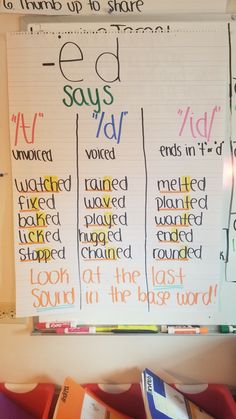 6 Thumb up to share
-ed
says
"/t/" "/d/" "/id/"
unvoiced voiced ends in "t" or "d"
watched rained melted
fixed waved planted
baked played wanted
licked hugged ended
stopped chained rounded
Look at the last
sound in the base word!!